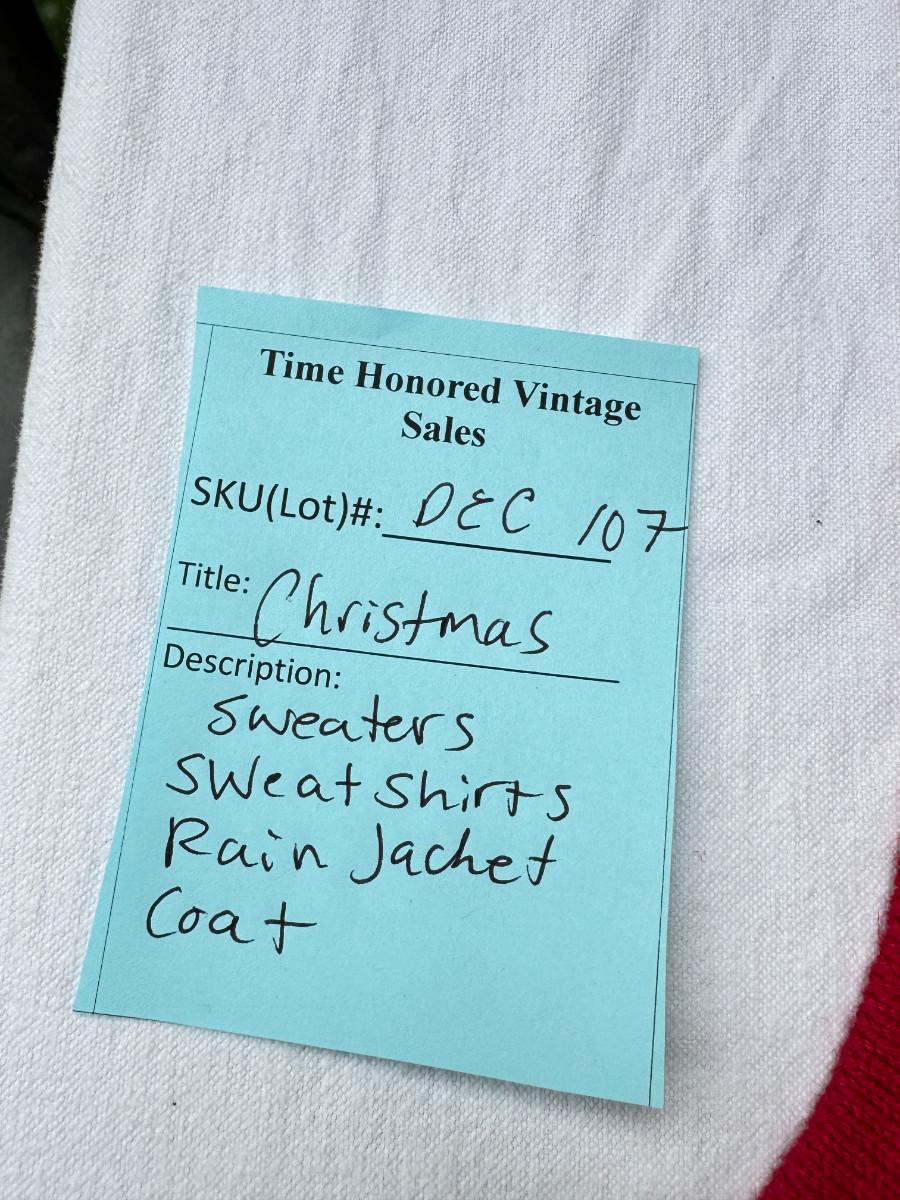 Time Honored Vintage
Sales
SKU(Lot)#: DEC 107
Title: Christmas
Description:
Sweaters
SWeat Shirts
Rain Jacket
Coat